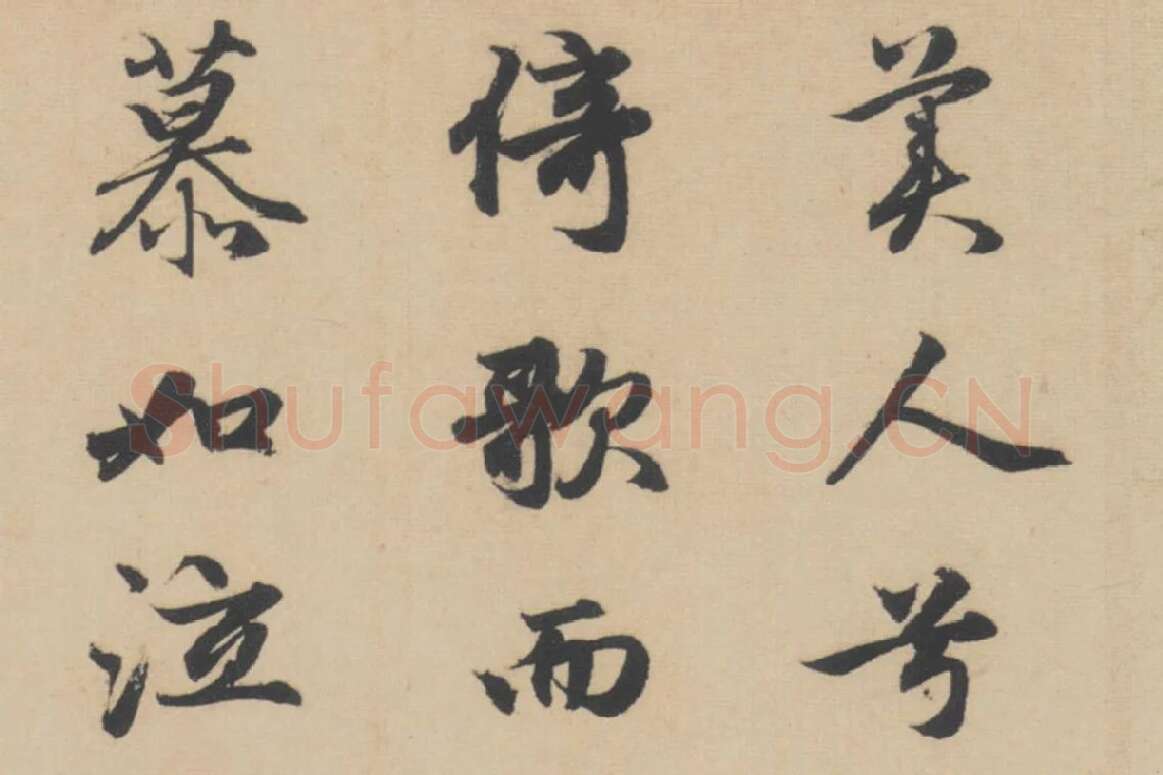 美人兮
倚歌而
慕如泣
Shufawang.CN